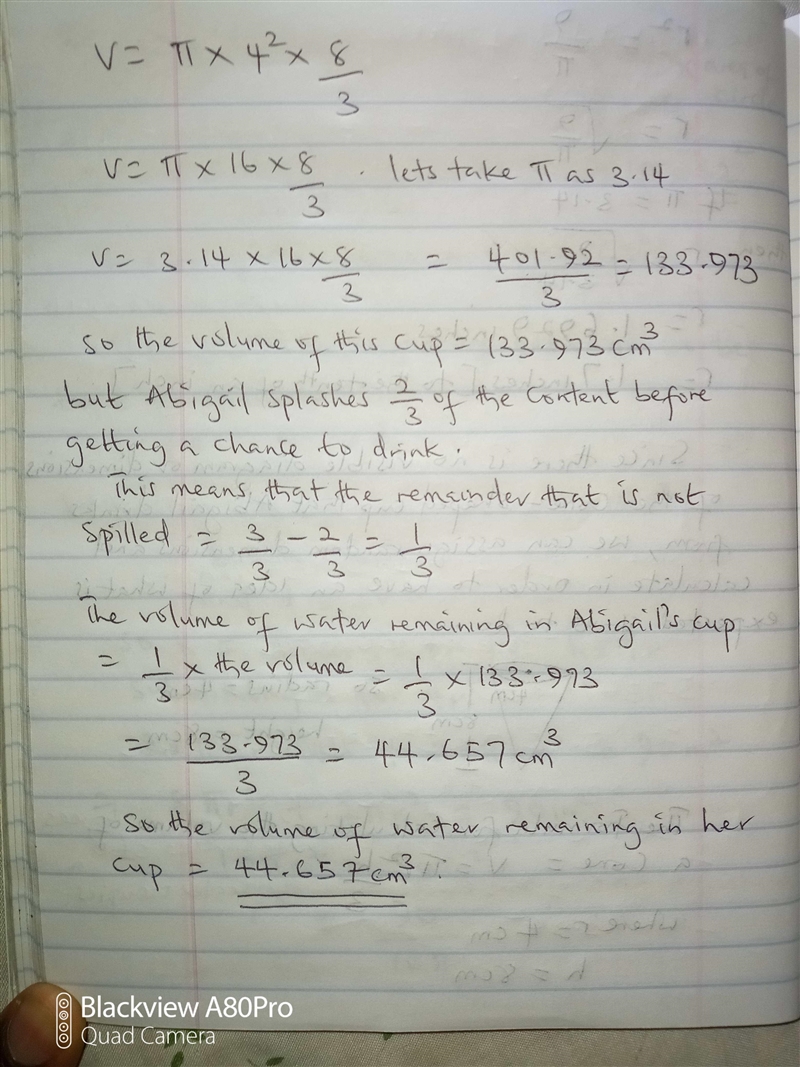 V = π × 4² × 8/3
V = π × 16 × 8/3 . lets take π as 3.14
V = 3.14 × 16 × 8/3 = 401.92/3 = 133.973
So the volume of this cup = 133.973 cm³
but Abigail splashes 2/3 of the content before
getting a chance to drink.
This means that the remainder that is not
Spilled = 3/3 - 2/3 = 1/3
The volume of water remaining in Abigail's cup
= 1/3 × the volume = 1/3 × 133.973
= 133.973/3 = 44.657 cm³
So the volume of water remaining in her
cup = 44.657 cm³.
Blackview A80Pro
Quad Camera